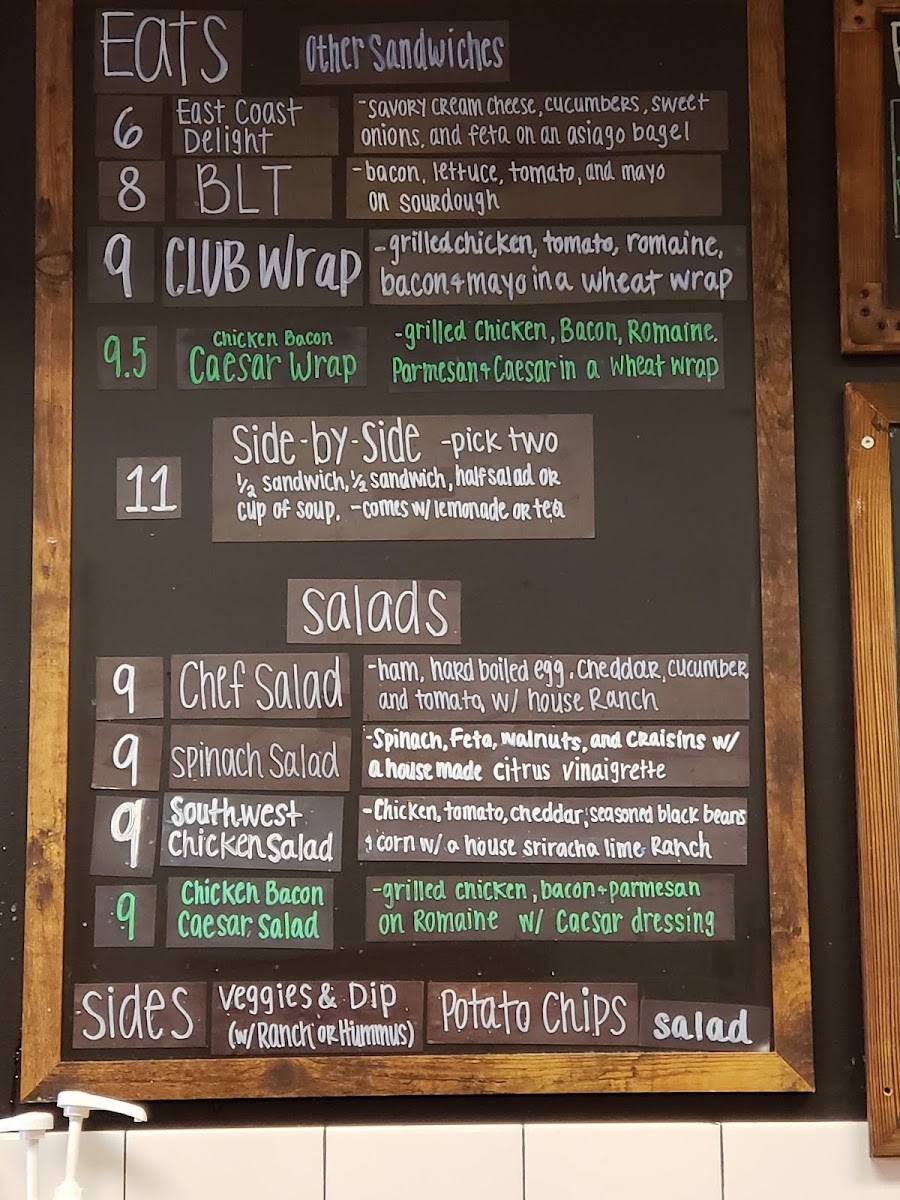 Eats
Other Sandwiches
6
East Coast
Delight
-savory cream cheese, cucumbers, sweet
onions, and feta on an asiago bagel
8
BLT
-bacon, lettuce, tomato, and mayo
on sourdough
9
CLUB Wrap
-grilled chicken, tomato, romaine,
bacon + mayo in a wheat wrap
9.5
Chicken Bacon
Caesar Wrap
-grilled chicken, Bacon, Romaine.
Parmesan + Caesar in a wheat wrap
11
Side-by-Side -pick two
1/2 sandwich, 1/2 sandwich, half salad or
cup of soup. -comes w/ lemonade or tea
Salads
9
Chef Salad
-ham, hard boiled egg, cheddar, cucumber,
and tomato, w/ house Ranch
9
Spinach Salad
-Spinach, Feta, walnuts, and craisins w/
a house made citrus vinaigrette
9
Southwest
Chicken Salad
-Chicken, tomato, cheddar, seasoned black beans
+ corn w/ a house sriracha lime Ranch
9
Chicken Bacon
Caesar Salad
-grilled chicken, bacon + parmesan
on Romaine w/ Caesar dressing
Sides
Veggies & Dip
(w/ Ranch or Hummus)
Potato Chips
salad